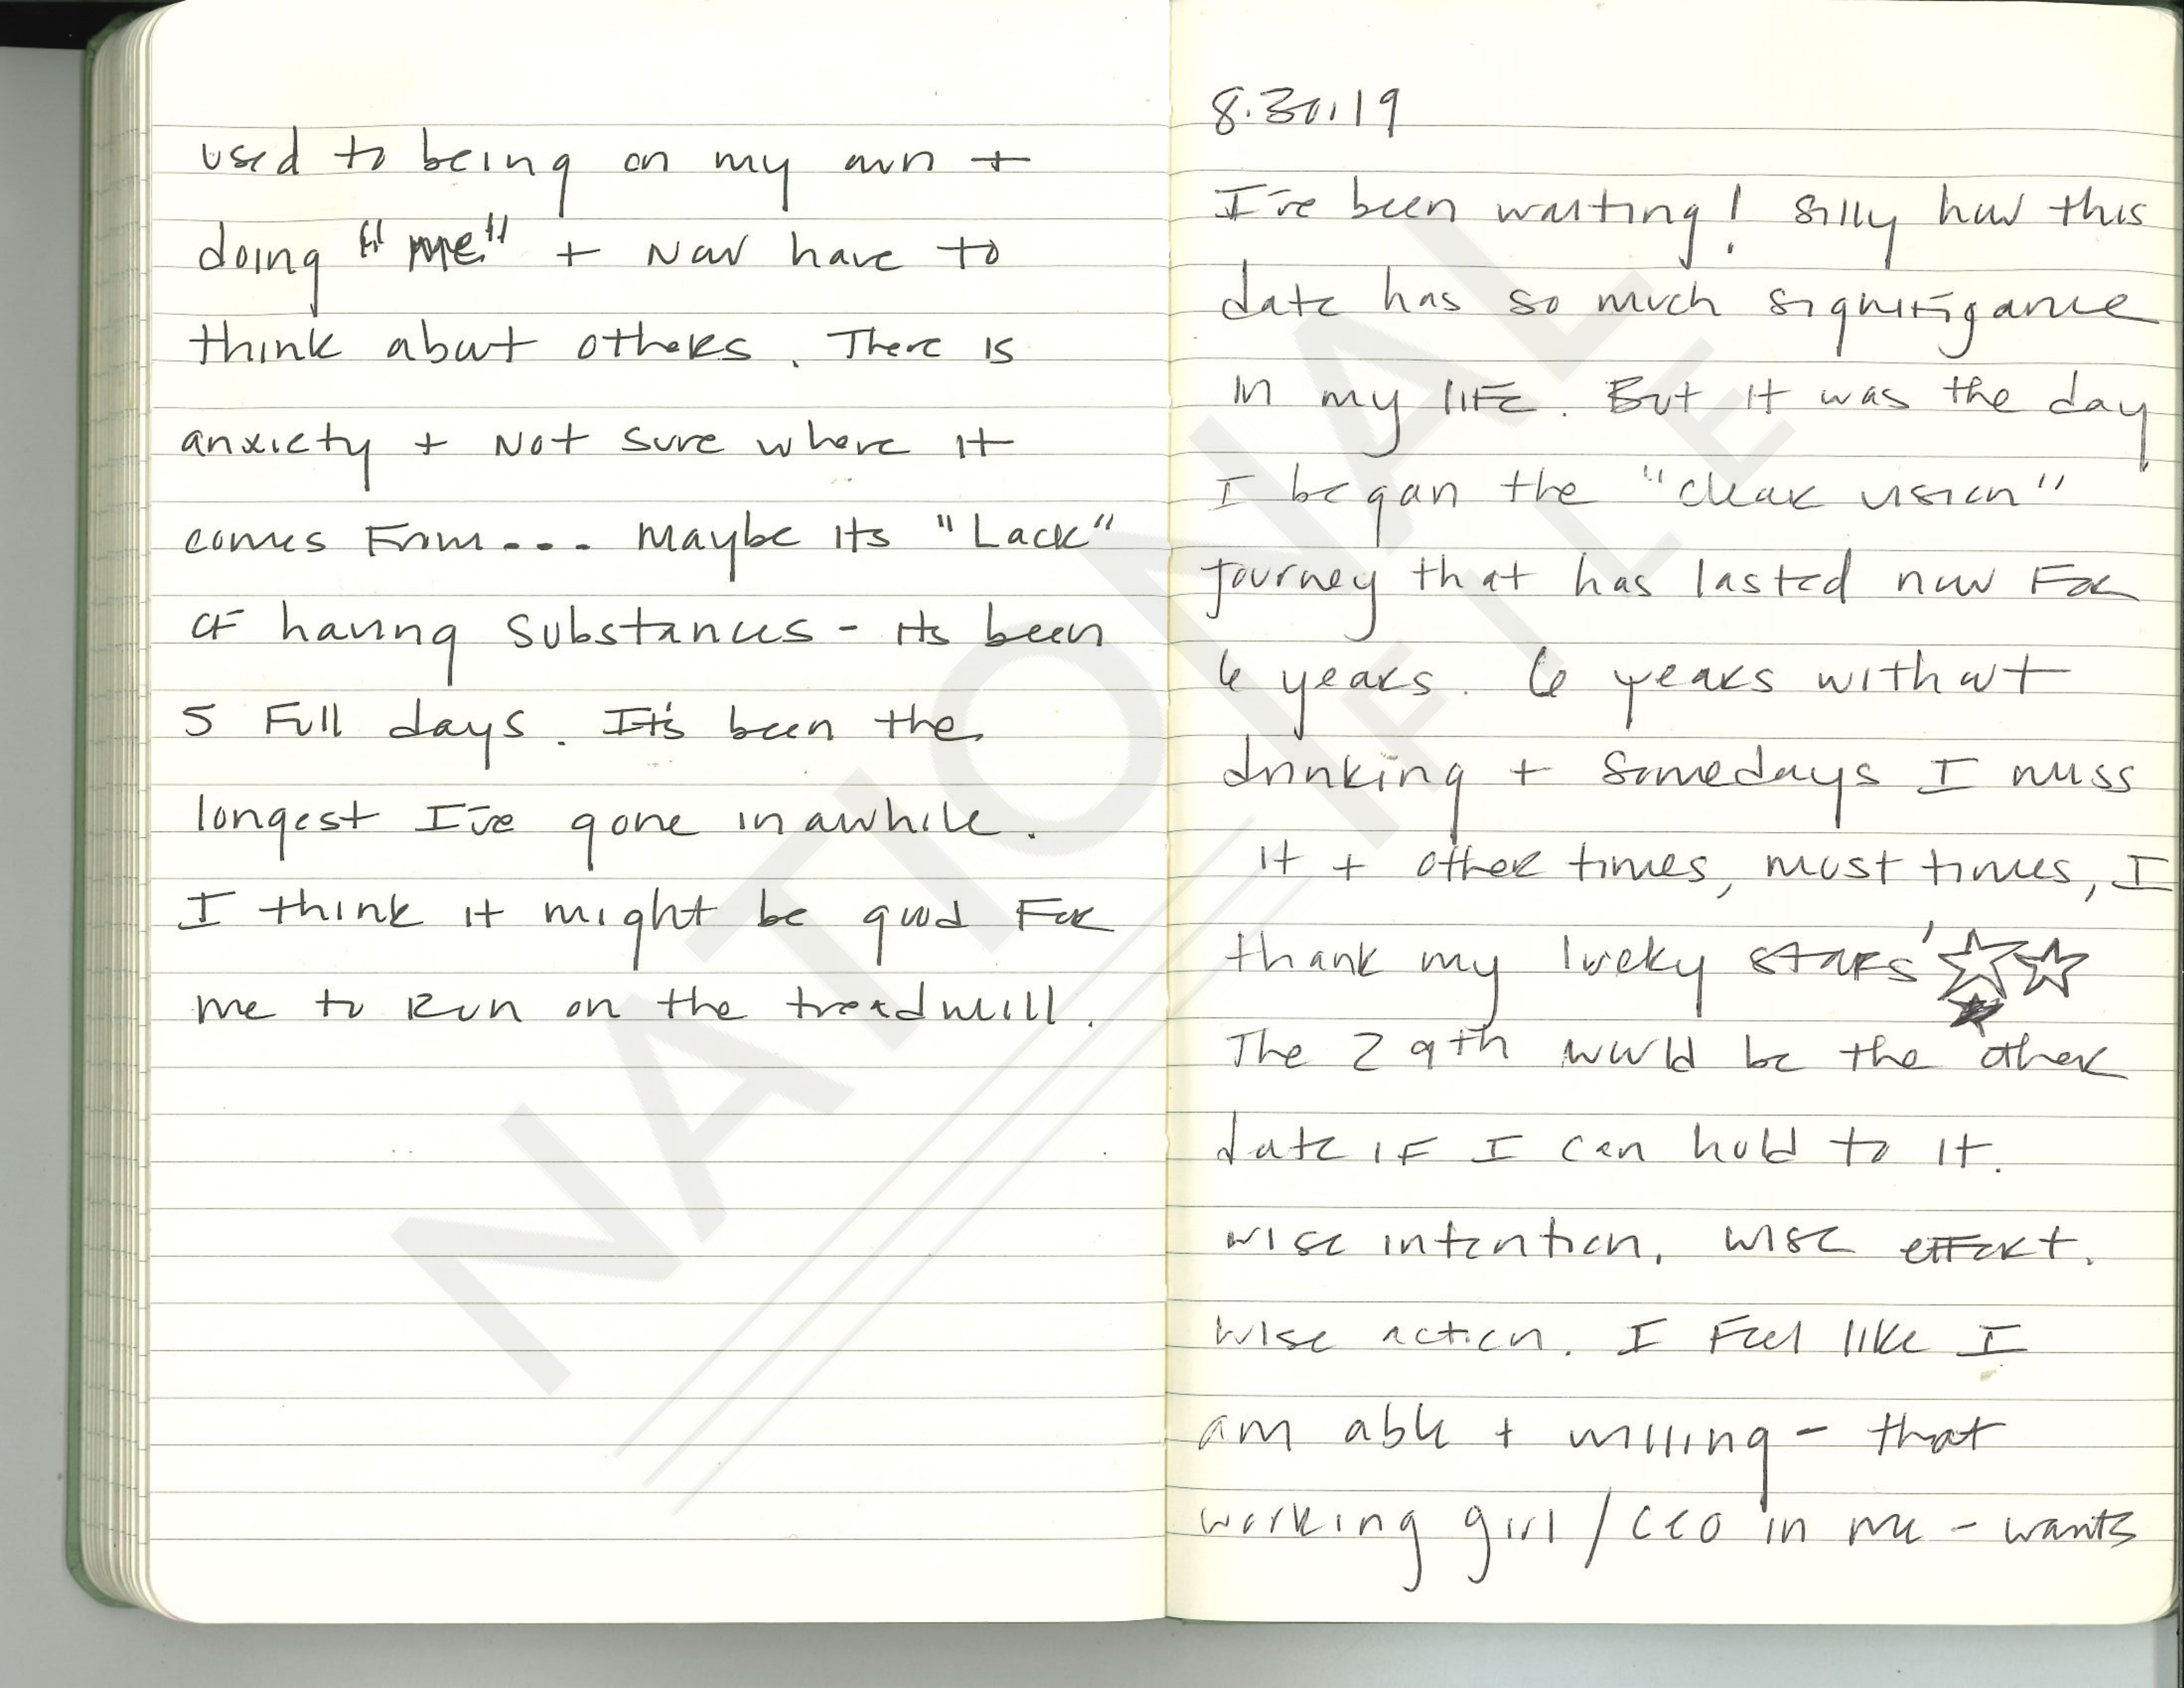 used to being on my own +
doing "me" + Now have to
think about others. There is
anxiety + Not sure where it
comes From... Maybe its "Lack"
of having substances - its been
5 Full days. It's been the
longest I've gone in awhile.
I think it might be good For
me to Run on the treadmill.
8.30.19
I've been waiting! Silly how this
date has so much signifigance
in my life. But it was the day
I began the "clear vision"
journey that has lasted now For
6 years. 6 years without
drinking + somedays I miss
it + other times, most times, I
thank my lucky stars'
The 29th would be the other
date if I can hold to it.
wise intention, wise effort.
wise action. I Feel like I
am able + willing - that
working girl / CEO in me - wants
NATIONAL
FILE